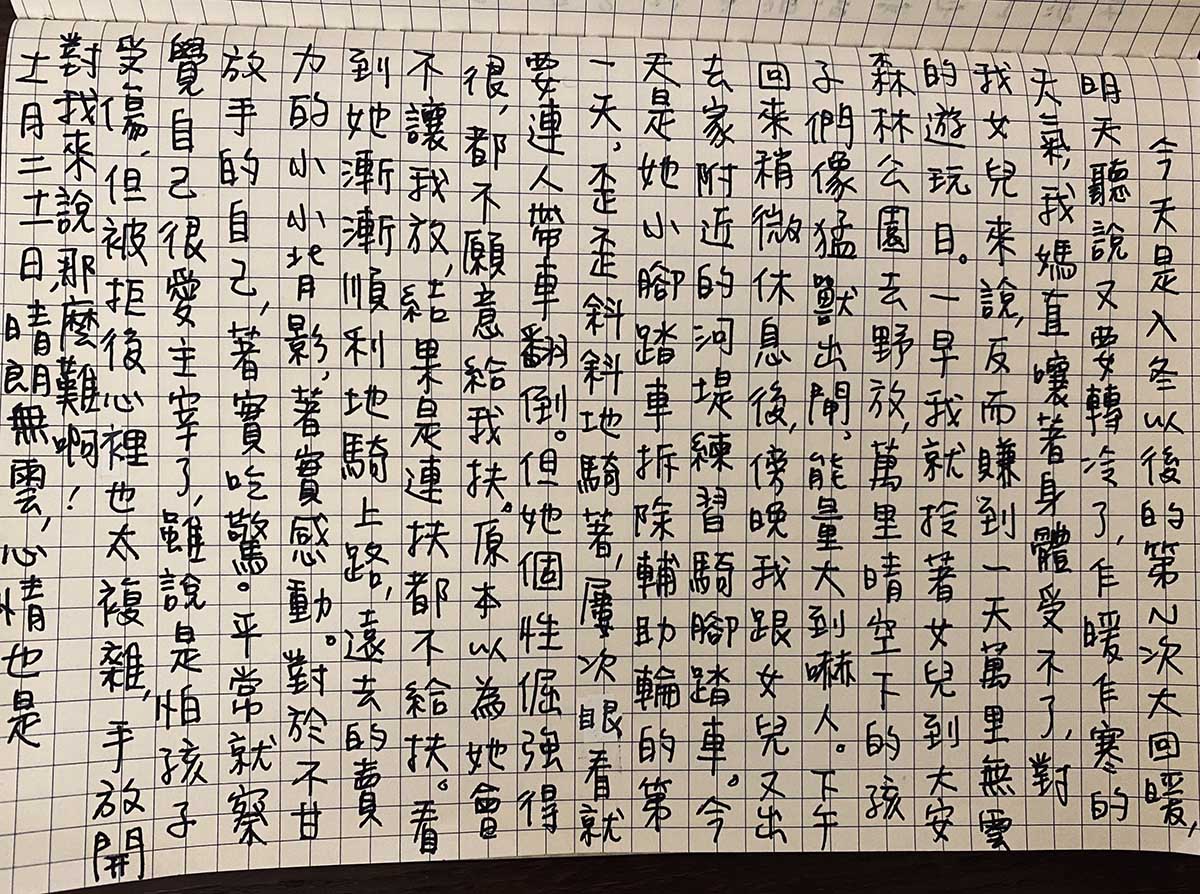 今天是入冬以後的第N次大回暖,
明天聽說又要轉冷了,乍暖乍寒的
天氣,我媽直嚷著身體受不了,對
我女兒來說,反而賺到一天萬里無雲
的遊玩日。一早我就拎著女兒到大安
森林公園去野放,萬里晴空下的孩
子們像猛獸出閘,能量大到嚇人。下午
回來稍微休息後,傍晚我跟女兒又出
去家附近的河堤練習騎腳踏車。今
天是她小腳踏車拆除輔助輪的第
一天,歪歪斜斜地騎著,屢次眼看就
要連人帶車翻倒。但她個性倔強得
很,都不願意給我扶。原本以為她會
不讓我放,結果是連扶都不給扶。看
到她漸漸順利地騎上路,遠去的賣
力的小小背影,著實感動。對於不甘
放手的自己,著實吃驚。平常就察
覺自己很愛主宰了,雖說是怕孩子
受傷,但被拒後心裡也太複雜,手放開
對我來說那麼難啊!
十一月二十一日,晴朗無雲,心情也是